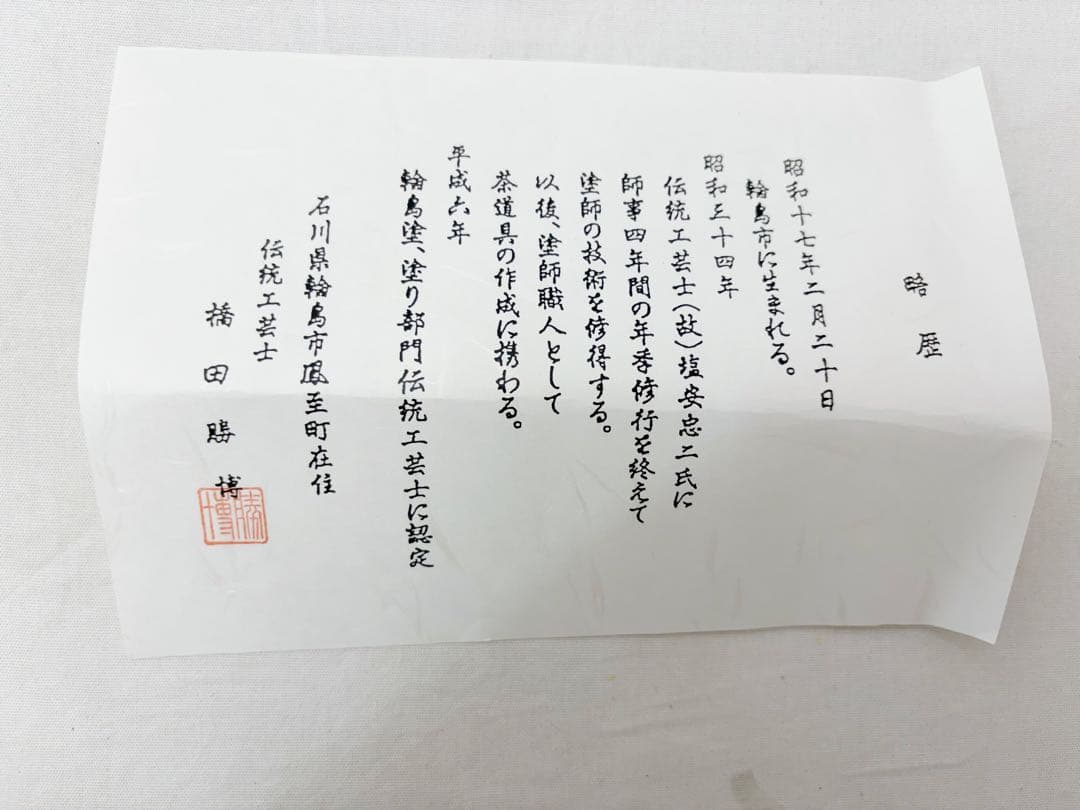 略歴
昭和十七年二月二十日
輪島市に生まれる。
昭和三十四年
伝統工芸士(故)塩安忠二氏に
師事四年間の年季修行を終えて
塗師の技術を修得する。
以後、塗師職人として
茶道具の作成に携わる。
平成六年
輪島塗、塗り部門伝統工芸士に認定
石川県輪島市鳳至町在住
伝統工芸士
橋田勝博
勝博